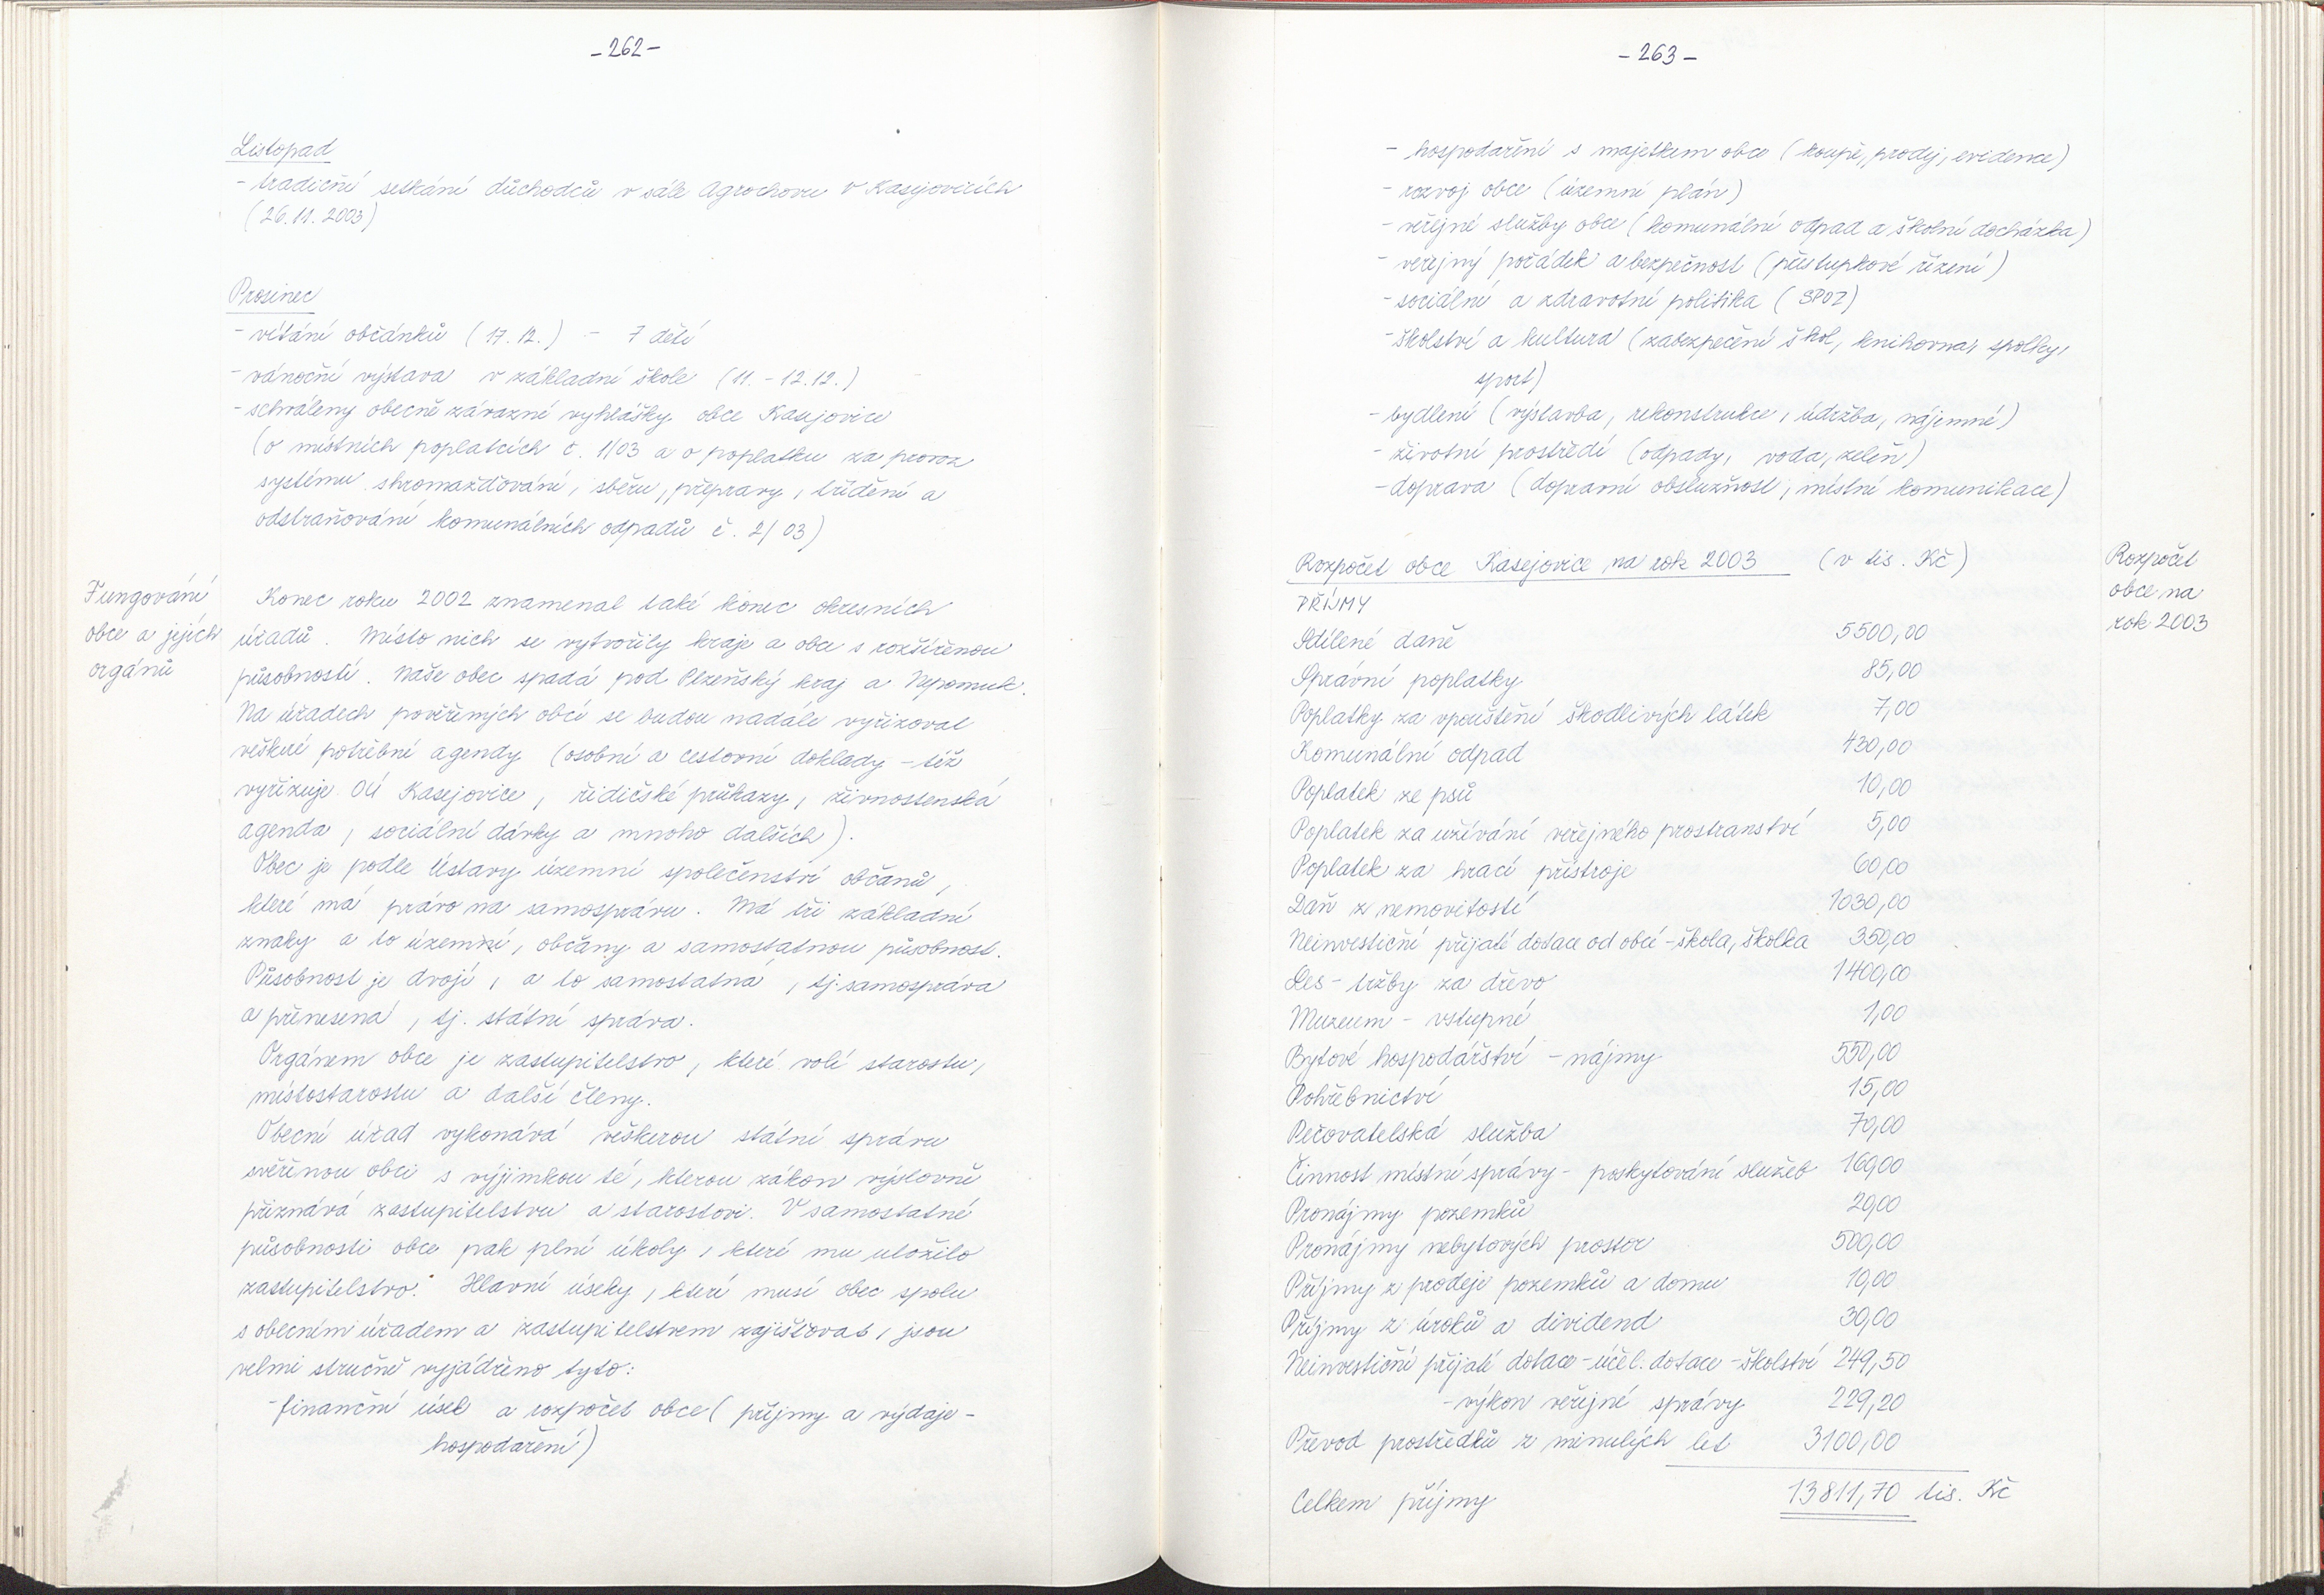 -262-
Listopad
- tradiční setkání důchodců v sále Agrochovu v Kasejovicích
(26.11.2003)
Prosinec
- vítání občánků (17.12.) - 7 dětí
- vánoční výstava v základní škole (11.-12.12.)
- schváleny obecně závazné vyhlášky obce Kasejovice
(o místních poplatcích č. 1/03 a o poplatku za provoz
systému shromažďování, sběru, přepravy, třídění a
odstraňování komunálních odpadů č. 2/03)
Fungování
obce a jejích
orgánů
Konec roku 2002 znamenal také konec okresních
úřadů. Místo nich se vytvořily kraje a obce s rozšířenou
působností. Naše obec spadá pod Plzeňský kraj a Nepomuk.
Na úřadech pověřených obcí se budou nadále vyřizovat
veškeré potřebné agendy (osobní a cestovní doklady - též
vyřizuje OÚ Kasejovice, řidičské průkazy, živnostenská
agenda, sociální dávky a mnoho dalších).
Obec je podle Ústavy územní společenství občanů,
které má právo na samosprávu. Má tři základní
znaky a to územní, občany a samostatnou působnost.
Působnost je dvojí, a to samostatná, tj. samospráva
a přenesená, tj. státní správa.
Orgánem obce je zastupitelstvo, které volí starostu,
místostarostu a další členy.
Obecní úřad vykonává veškerou státní správu
svěřenou obci s výjimkou té, kterou zákon výslovně
přiznává zastupitelstvu a starostovi. V samostatné
působnosti obce pak plní úkoly, které mu uložilo
zastupitelstvo. Hlavní úseky, které musí obec spolu
s obecním úřadem a zastupitelstvem zajišťovat, jsou
velmi stručně vyjádřeno tyto:
- finanční úsek a rozpočet obce (příjmy a výdaje -
hospodaření)
-263-
- hospodaření s majetkem obce (koupě, prodej, evidence)
- rozvoj obce (územní plán)
- veřejné služby obce (komunální odpad a školní docházka)
- veřejný pořádek a bezpečnost (přestupkové řízení)
- sociální a zdravotní politika (SPOZ)
- školství a kultura (zabezpečení škol, knihovna, spolky,
sport)
- bydlení (výstavba, rekonstrukce, údržba, nájemné)
- životní prostředí (odpady, voda, zeleň)
- doprava (dopravní obslužnost, místní komunikace)
Rozpočet obce Kasejovice na rok 2003 (v tis. Kč)
Rozpočet
obce na
rok 2003
PŘÍJMY
Sdílené daně 5500,00
Správní poplatky 85,00
Poplatky za vpouštění škodlivých látek 7,00
Komunální odpad 430,00
Poplatek ze psů 10,00
Poplatek za užívání veřejného prostranství 5,00
Poplatek za hrací přístroje 60,00
Daň z nemovitostí 1030,00
Neinvestiční přijaté dotace od obcí - škola, školka 350,00
Les - tržby za dřevo 1400,00
Muzeum - vstupné 1,00
Bytové hospodářství - nájmy 550,00
Pohřebnictví 15,00
Pečovatelská služba 70,00
Činnost místní správy - poskytování služeb 160,00
Pronájmy pozemků 20,00
Pronájmy nebytových prostor 500,00
Příjmy z prodeje pozemků a domu 10,00
Příjmy z úroků a dividend 30,00
Neinvestiční přijaté dotace - účel. dotace - školství 249,50
- výkon veřejné správy 229,20
Převod prostředků z minulých let 3100,00
Celkem příjmy 13811,70 tis. Kč